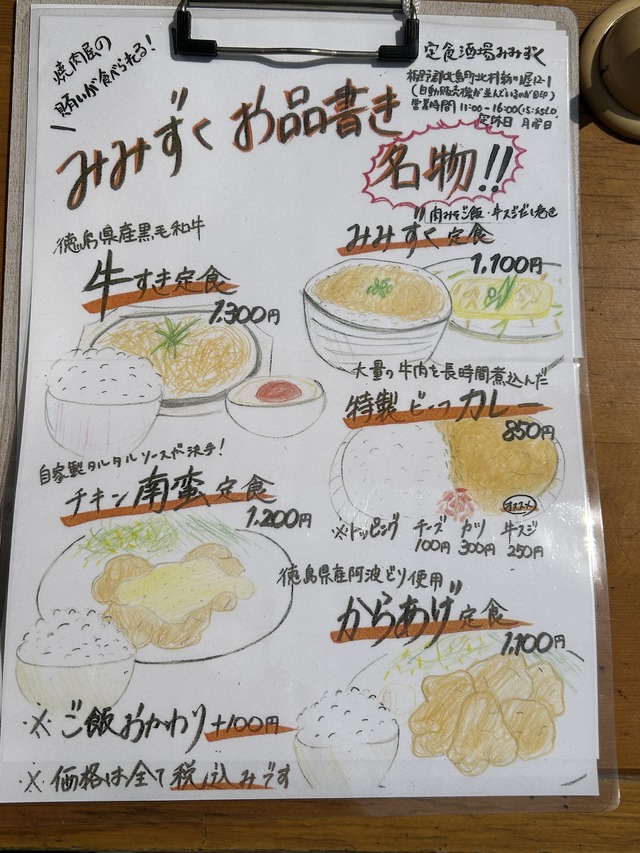 焼肉屋の
賄いが食べられる!
定食酒場みみずく
板野郡北島町北村新堀12-1
(自動販売機が並んでいるのが目印)
営業時間 11:00-16:00(15:45LO)
定休日 月曜日
みみずくお品書き
名物!!
徳島県産黒毛和牛
牛すき定食
1,300円
肉みそご飯・牛スジだし巻き
みみずく定食
1,100円
大量の牛肉を長時間煮込んだ
特製ビーフカレー
850円
オススメ
※トッピング チーズ カツ 牛スジ
100円 300円 250円
自家製タルタルソースが決手!
チキン南蛮定食
1,200円
徳島県産阿波どり使用
からあげ定食
1,100円
※ご飯おかわり+100円
※価格は全て税込みです